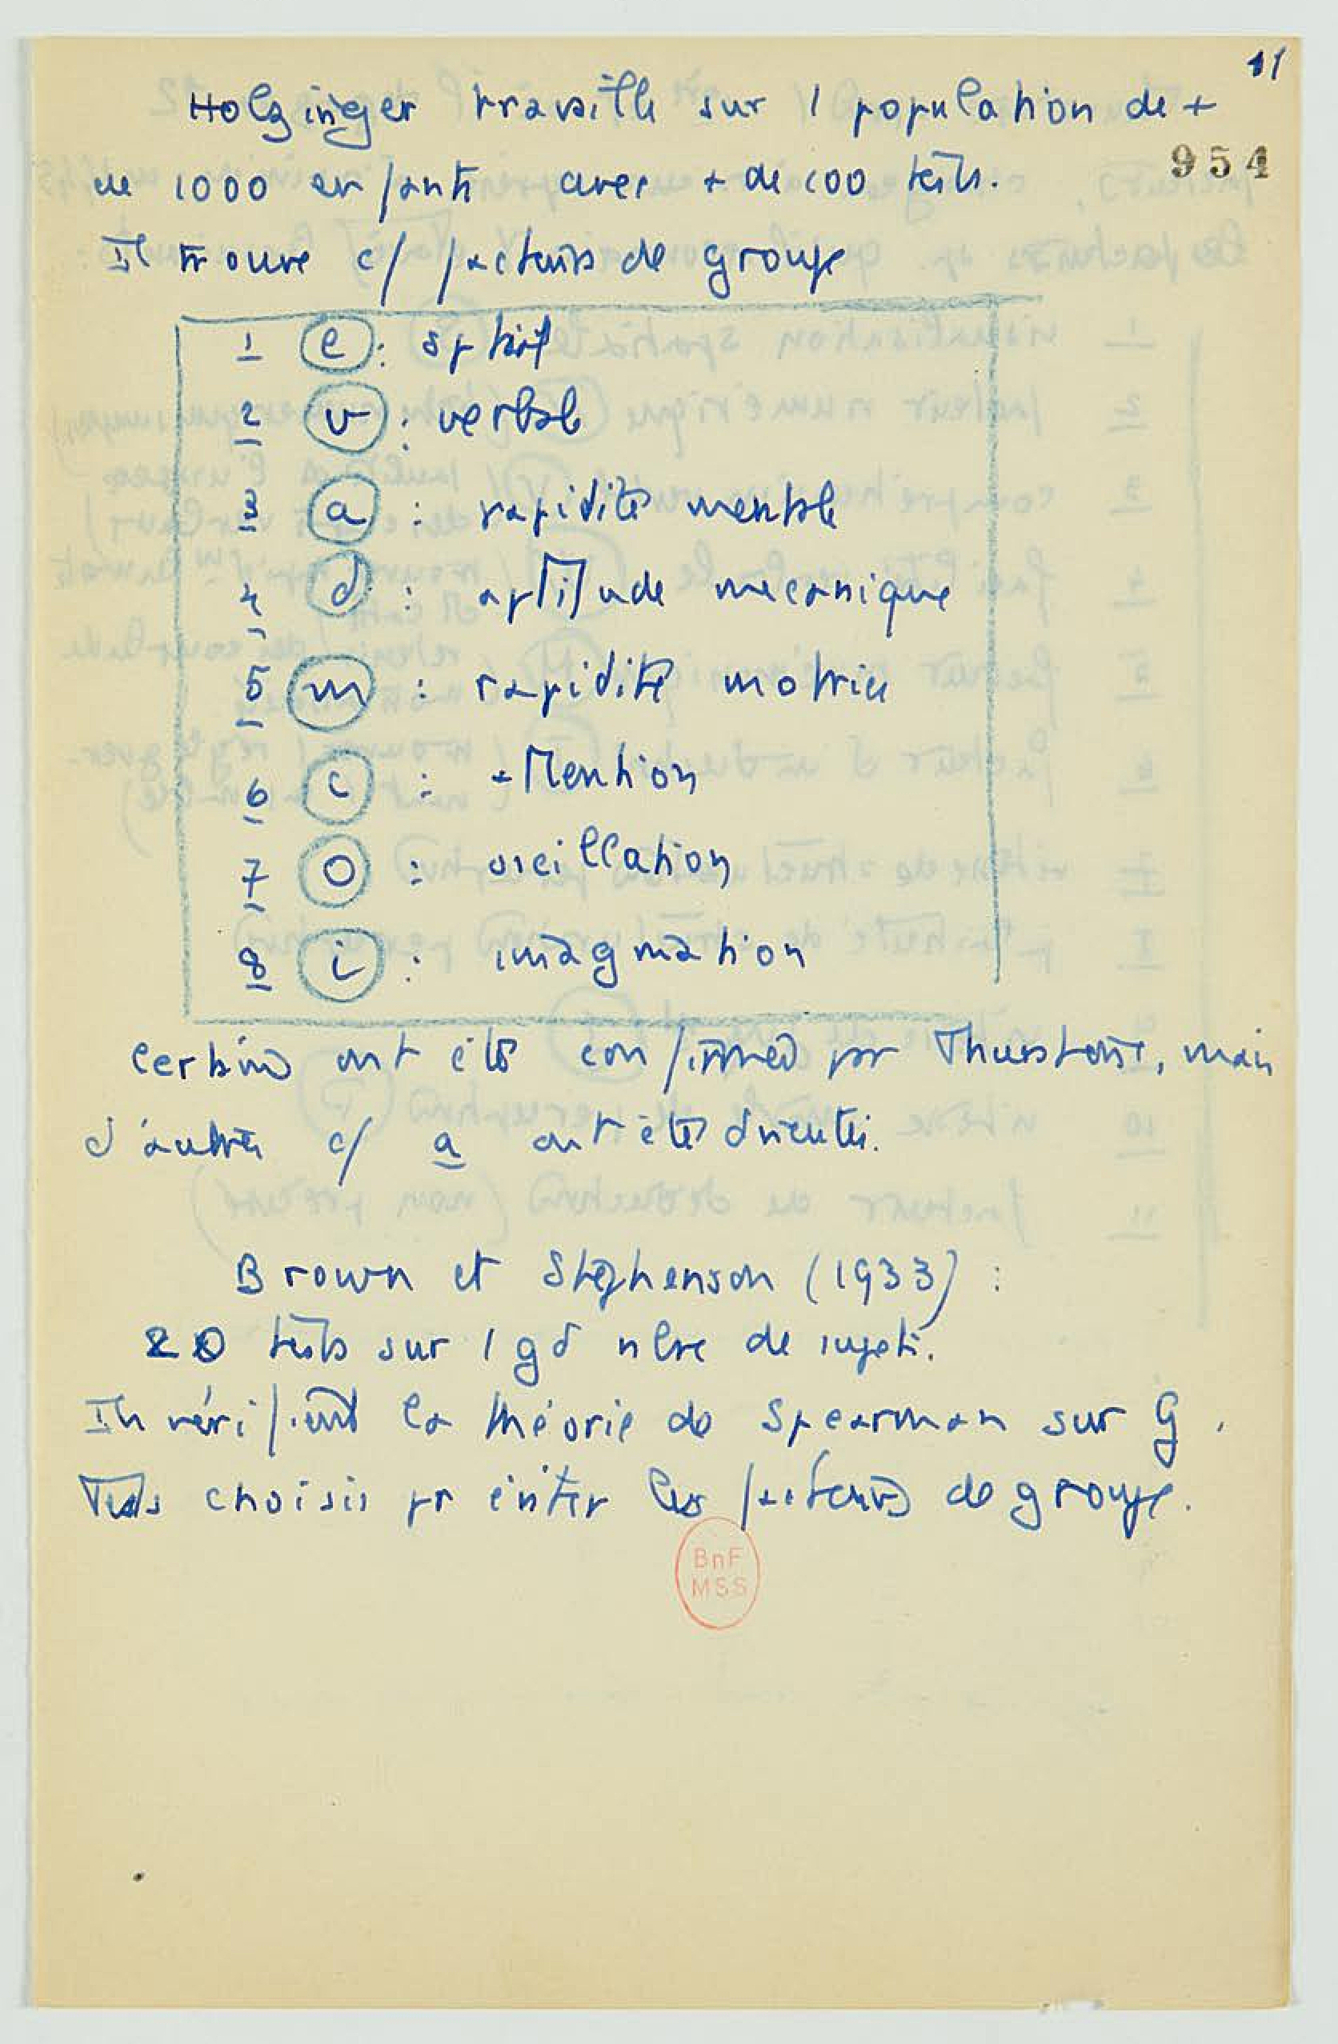 11
Holzinger travaille sur 1 population de +
954
de 1000 enfants avec + de 100 tests.
Il trouve c/ facteurs de groupe
1 e : spatial
2 v : verbal
3 a : rapidité mentale
4 d : aptitude mécanique
5 m : rapidité motrice
6 c : attention
7 o : oscillation
8 i : imagination
Certains ont été confirmés par Thurstone, mais
d'autres c/ a ont été discutés.
Brown et Stephenson (1933) :
20 tests sur 1 gd nbre de sujets.
Ils vérifient la théorie de Spearman sur G.
Tests choisis pr éviter les facteurs de groupe.
BnF
MSS